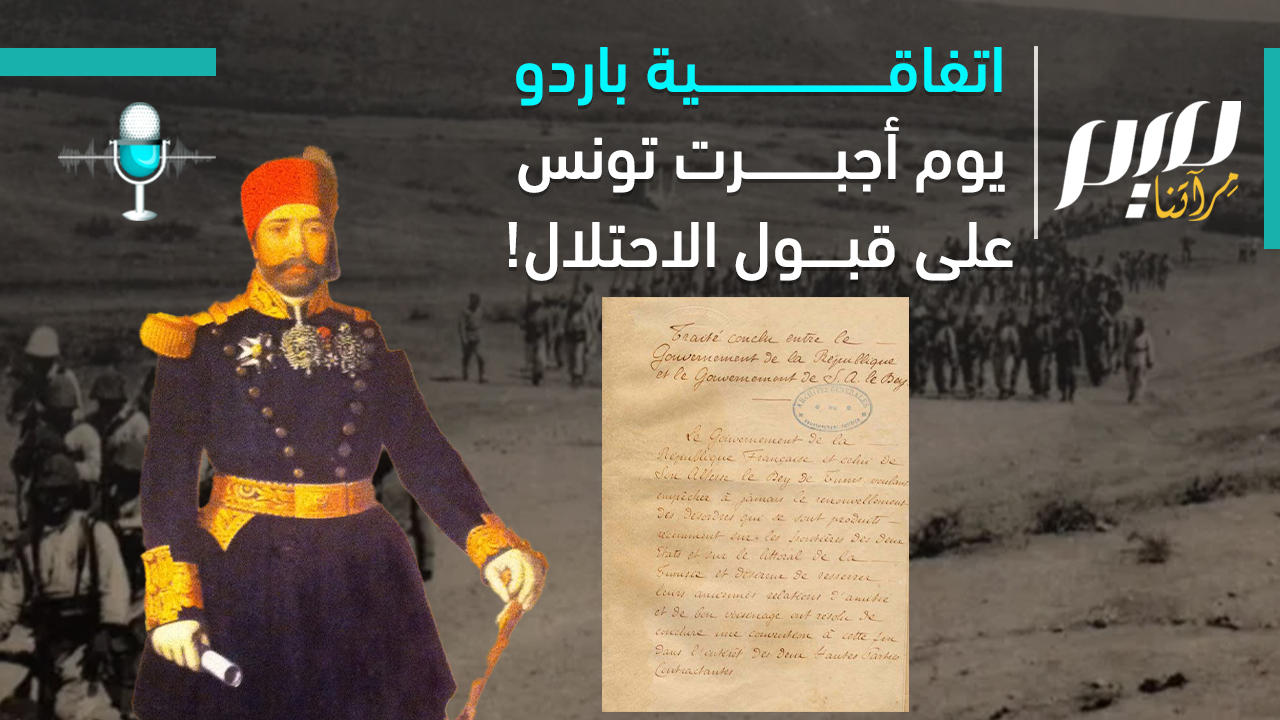 اتفاقية باردو
يوم أجبرت تونس
على قبول الاحتلال!
سير
مِرآتنا
Traité conclu entre le
Gouvernement de la République
et le Gouvernement de S. A. le Bey
ARCHIVES GÉNÉRALES
Le Gouvernement de la
République Française et celui de
Son Altesse le Bey de Tunis, voulant
empêcher à jamais le renouvellement
des désordres qui se sont produits
récemment sur les frontières des deux
États et sur le littoral de la
Tunisie et désireux de resserrer
leurs anciennes relations d'amitié
et de bon voisinage ont résolu de
conclure une convention à cette fin
dans l'intérêt des deux Hautes Parties
Contractantes